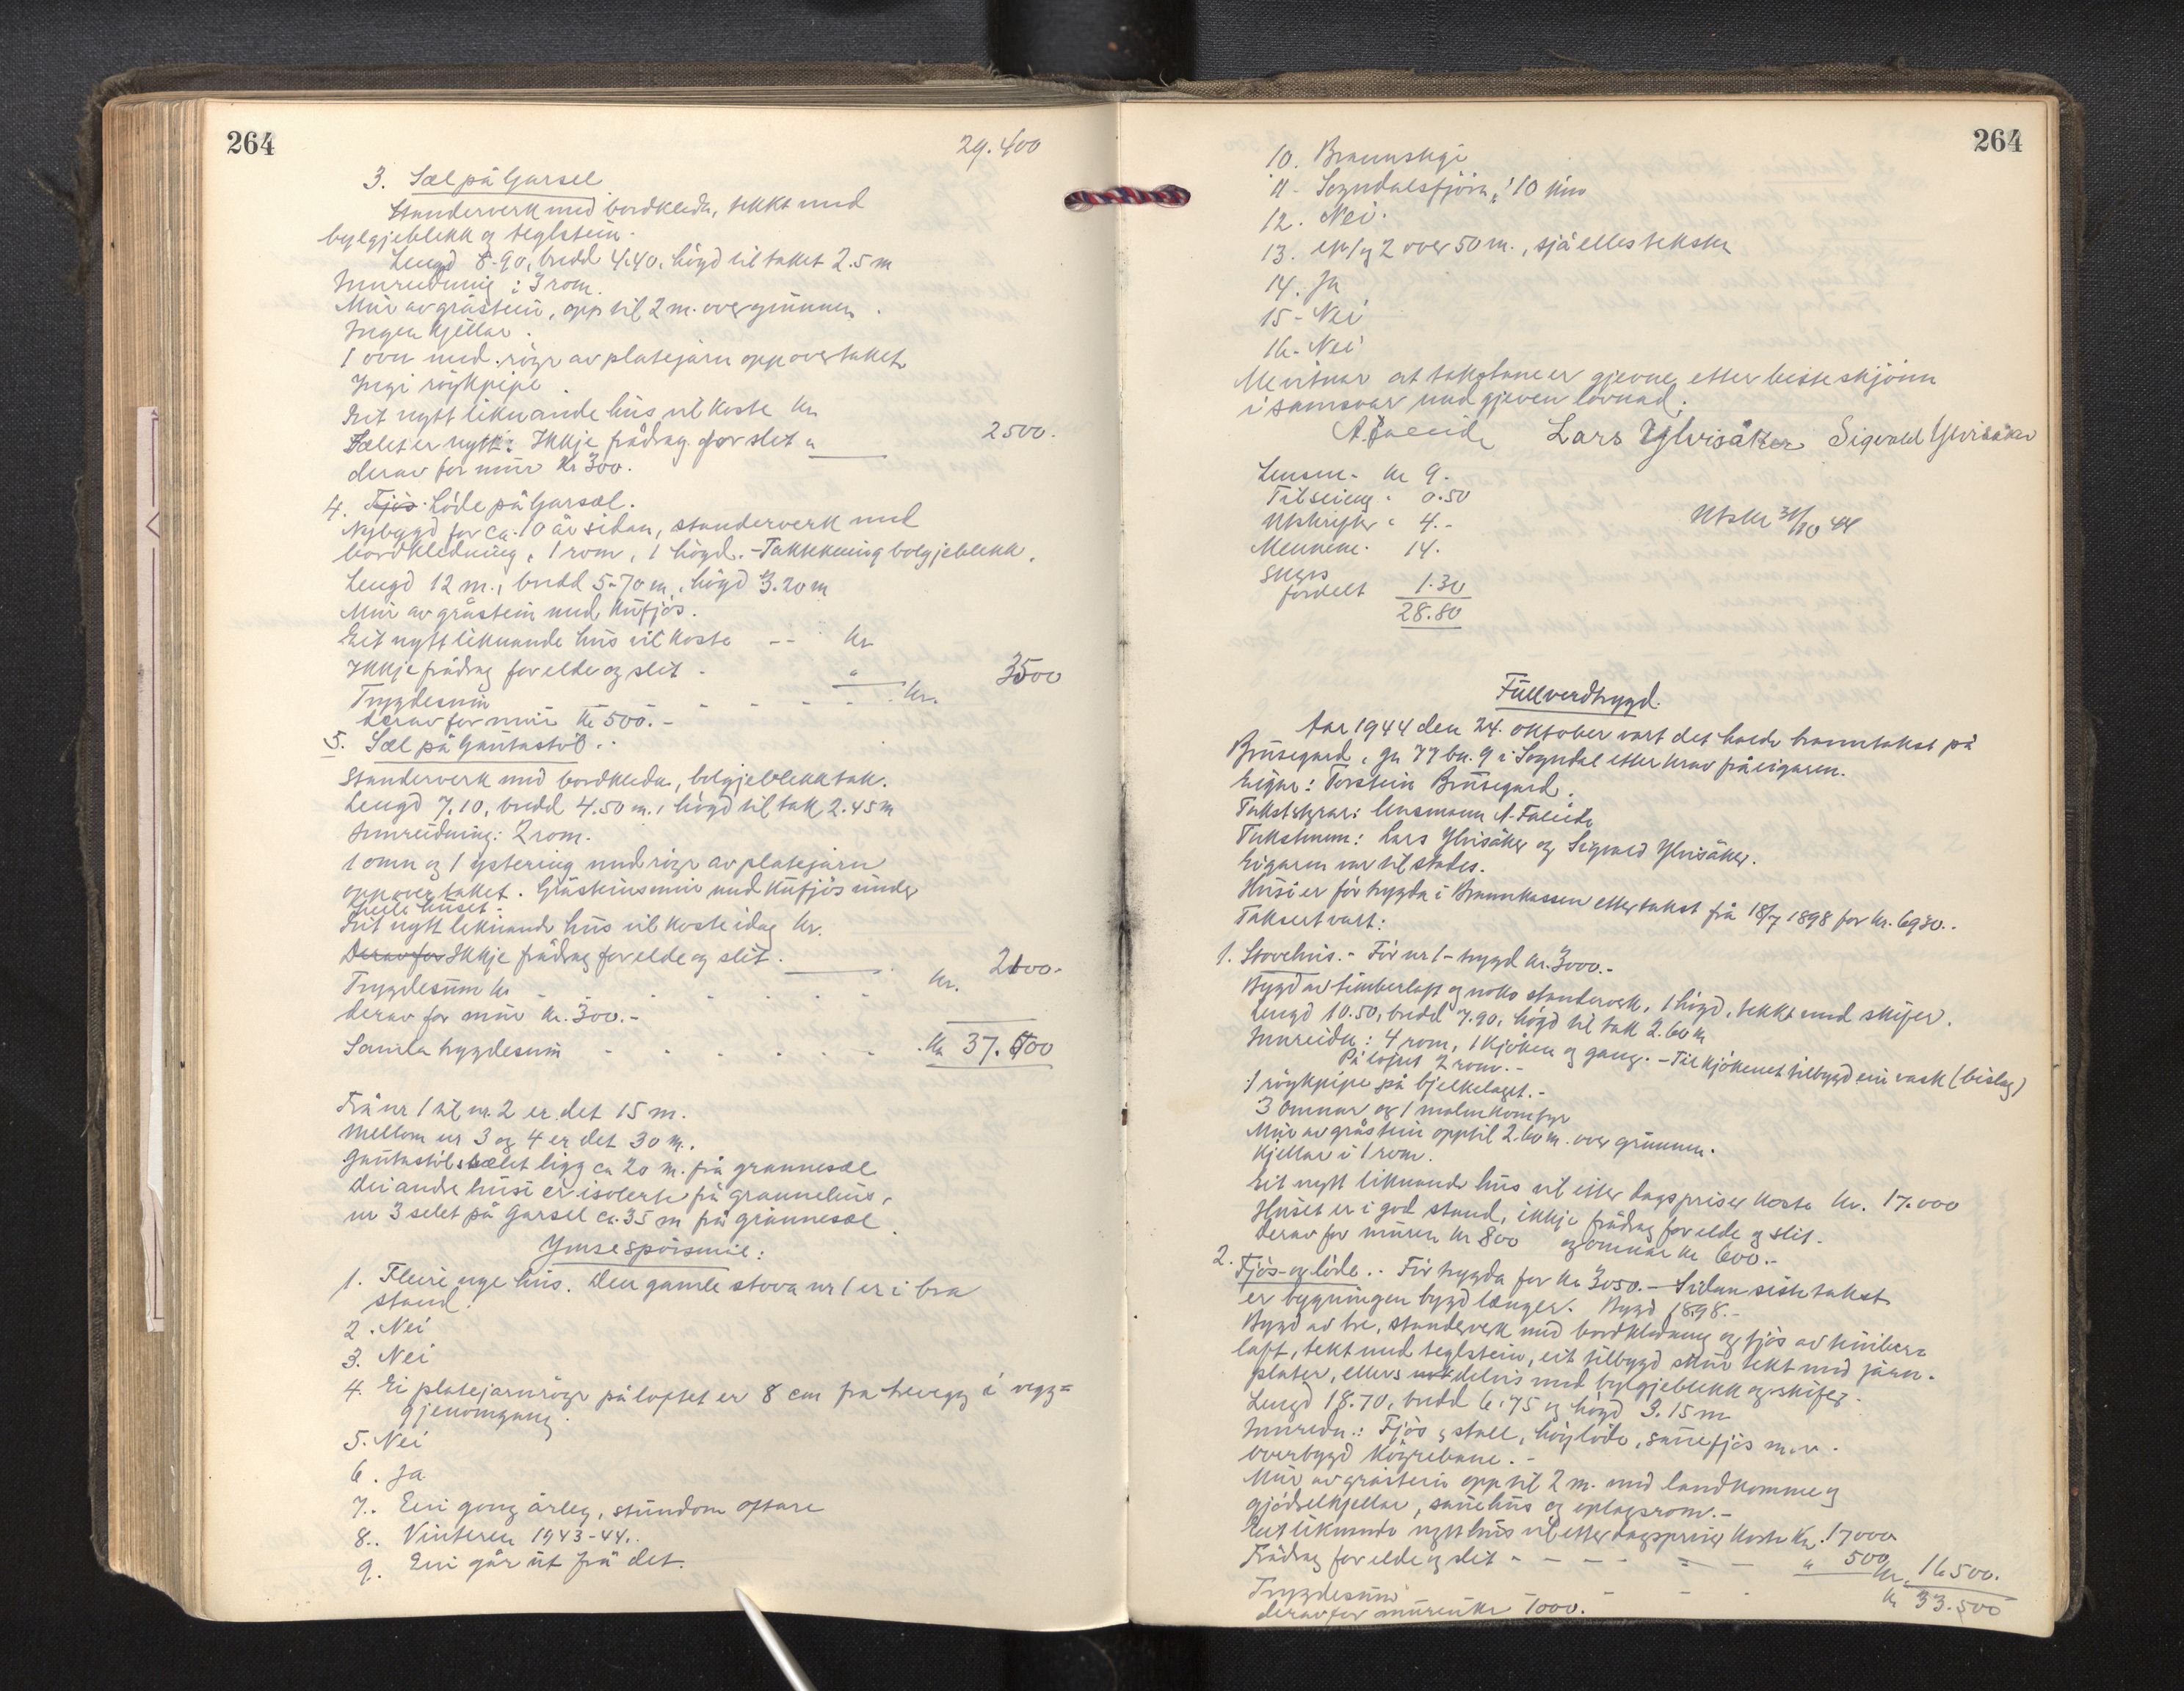 264
29.400
3. Sæl på Garsel
Standerverk med bordkledn, tekkt med
bylgjeblekk og teglstein.
Lengd 8.90, bredd 4.40, högd til taket 2.5 m
Innreidning: 3 rom.
Mur av gråstein, opp til 2 m. over grunnen.
Ingen kjellar.
1 ovn med röyr av platejarn opp over taket
Ingi röykpipe
Eit nytt liknande hus vil koste kr.
Sælet er nytt. Ikkje frådrag for slit "
2500.
derav for mur kr 300.
4. Fjös. Löde på Garsæl.
Nybyggd for ca. 10 år sidan, standerverk med
bordkledning, 1 rom, 1 högd. - Taktekning bolgjeblekk.
Lengd 12 m., bredd 5.70 m, högd 3.20 m
Mur av gråstein med kufjös.
Eit nytt liknande hus vil koste -- kr
Ikkje frådrag for elde og slit - "
3500
Trygdesum - - - - - kr.
derav for mur kr 500.-
5. Sæl på Gautastöl.
Standerverk med bordkledn, bolgjeblekktak.
Lengd 7.10, bredd 4.50 m., högd til tak 2.45 m
Innreidning: 2 rom.
1 omn og 1 ystering med röyr av platejarn
opp over taket. Gråsteinsmur med kufjös under
heile huset.
Eit nytt liknande hus vil koste idag kr.
Derav for Ikkje frådrag for elde og slit.
Trygdesum kr - - - - - kr. 2100.-
derav for mur kr. 300.-
Samla trygdesum - - - - - kr 37.500
Frå nr 1 til nr. 2 er det 15 m.
Mellom nr 3 og 4 er det 30 m.
Gautastölsælet ligg ca 20 m. frå grannesæl
Dei andre husi er isolerte frå grannehus,
nr 3 selet på Garsel ca. 35 m frå grannesæl.
Ymse spörsmål:
1. Fleire nye hus. Den gamle stova nr 1 er i bra
stand.
2. Nei
3. Nei
4. Ei platejarnröyr på loftet er 8 cm fra trevegg i vegg=
gjenomgang.
5. Nei
6. Ja
7. Ein gong årleg, stundom oftare
8. Vinteren 1943-44.
9. Ein går ut frå det.
264
10. Brannstige
11. Sogndalsfjöra, 10 km
12. Nei.
13. nr 1 og 2 over 50 m., sjå elles teksten
14. Ja
15. Nei
16. Nei
Me vitnar at takstane er gjevne etter beste skjönn
i samsvar med gjeven lovnad.
A. Faleide Lars Ylvisåker Sigvald Ylvisåker
Lensm. kr 9.
Tilseiing " 0.50
Utskrifter " 4.-
Mennene. 14.
Skyss
fordelt 1.30
28.80
Utskr 31/10 44
Fullverdtrygd.
Aar 1944 den 24. oktober vart det halde branntakst på
Brusegard, gn 77 bn. 9 i Sogndal etter krav frå eigaren.
Eigar: Torstein Brusegard.
Takststyrar: lensmann A. Faleide
Takstmenn: Lars Ylvisåker og Sigvald Ylvisåker.
Eigaren var til stades.
Husi er för trygda i Brannkassen etter takst frå 18/7 1898 for kr. 6930..
Taksert vart:
1. Stovehus.- För nr 1 - trygd kr. 3000.-
Bygd av timberlaft og noko standerverk, 1 högd, tekkt med skifer.
Lengd 10.50, bredd 7.90, högd til tak 2.60 m
Innreidn: 4 rom, 1 kjöken og gang. - Til kjökenet tilbygd ein vask (bislag)
På loftet 2 rom.-
1 röykpipe på bjelkelaget.-
3 omnar og 1 malmkomfyr
Mur av gråstein opptil 2.60 m. over grunnen.
Kjellar i 1 rom.
Eit nytt liknande hus vil etter dagspriser koste kr. 17.000
Huset er i god stand, ikkje frådrag for elde og slit.
Derav for muren kr 800 og omnar kr 600.-
2. Fjös- og löde.. För trygda for kr 3050.- Sidan siste takst
er bygningen bygd længer. Bygd 1898.-
Bygd av tre, standerverk med bordkledning og fjös av timber=
laft, tekt med teglstein, eit tilbygd skur tekt med járn-
plater, ellers delvis med bylgjeblekk og skifer.
Lengd 18.70, bredd 6.75 og högd 3.15 m
Innredn.: Fjös, stall, höylöde, sauefjös m.v.
overbygd köyrebane.-
Mur av gråstein opp til 2 m. med landkomme og
gjödselkjellar, sauehus og oplagsrom.-
Eit liknande nytt hus vil etter dagspriser koste kr. 17000
Frådrag for elde og slit - - - - " 500
kr. 16500.
Trygdesum - - - kr 33.500
derav for muren kr 1000.